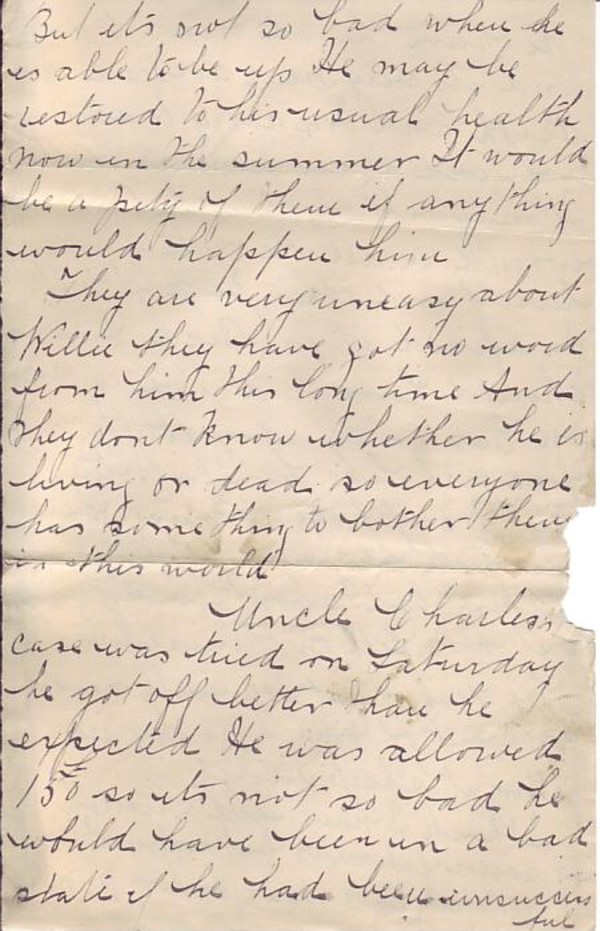 But its not so bad when he
is able to be up He may be
restored to his usual health
now in the summer It would
be a pity of them if anything
would happen him
They are very uneasy about
Willie they have got no word
from him this long time And
they dont know whether he is
living or dead so everyone
has something to bother them
in this world
Uncle Charless
case was tried on Saturday
he got off better than he
expected He was allowed
150 so its not so bad he
would have been in a bad
state if he had been unsuccess
ful